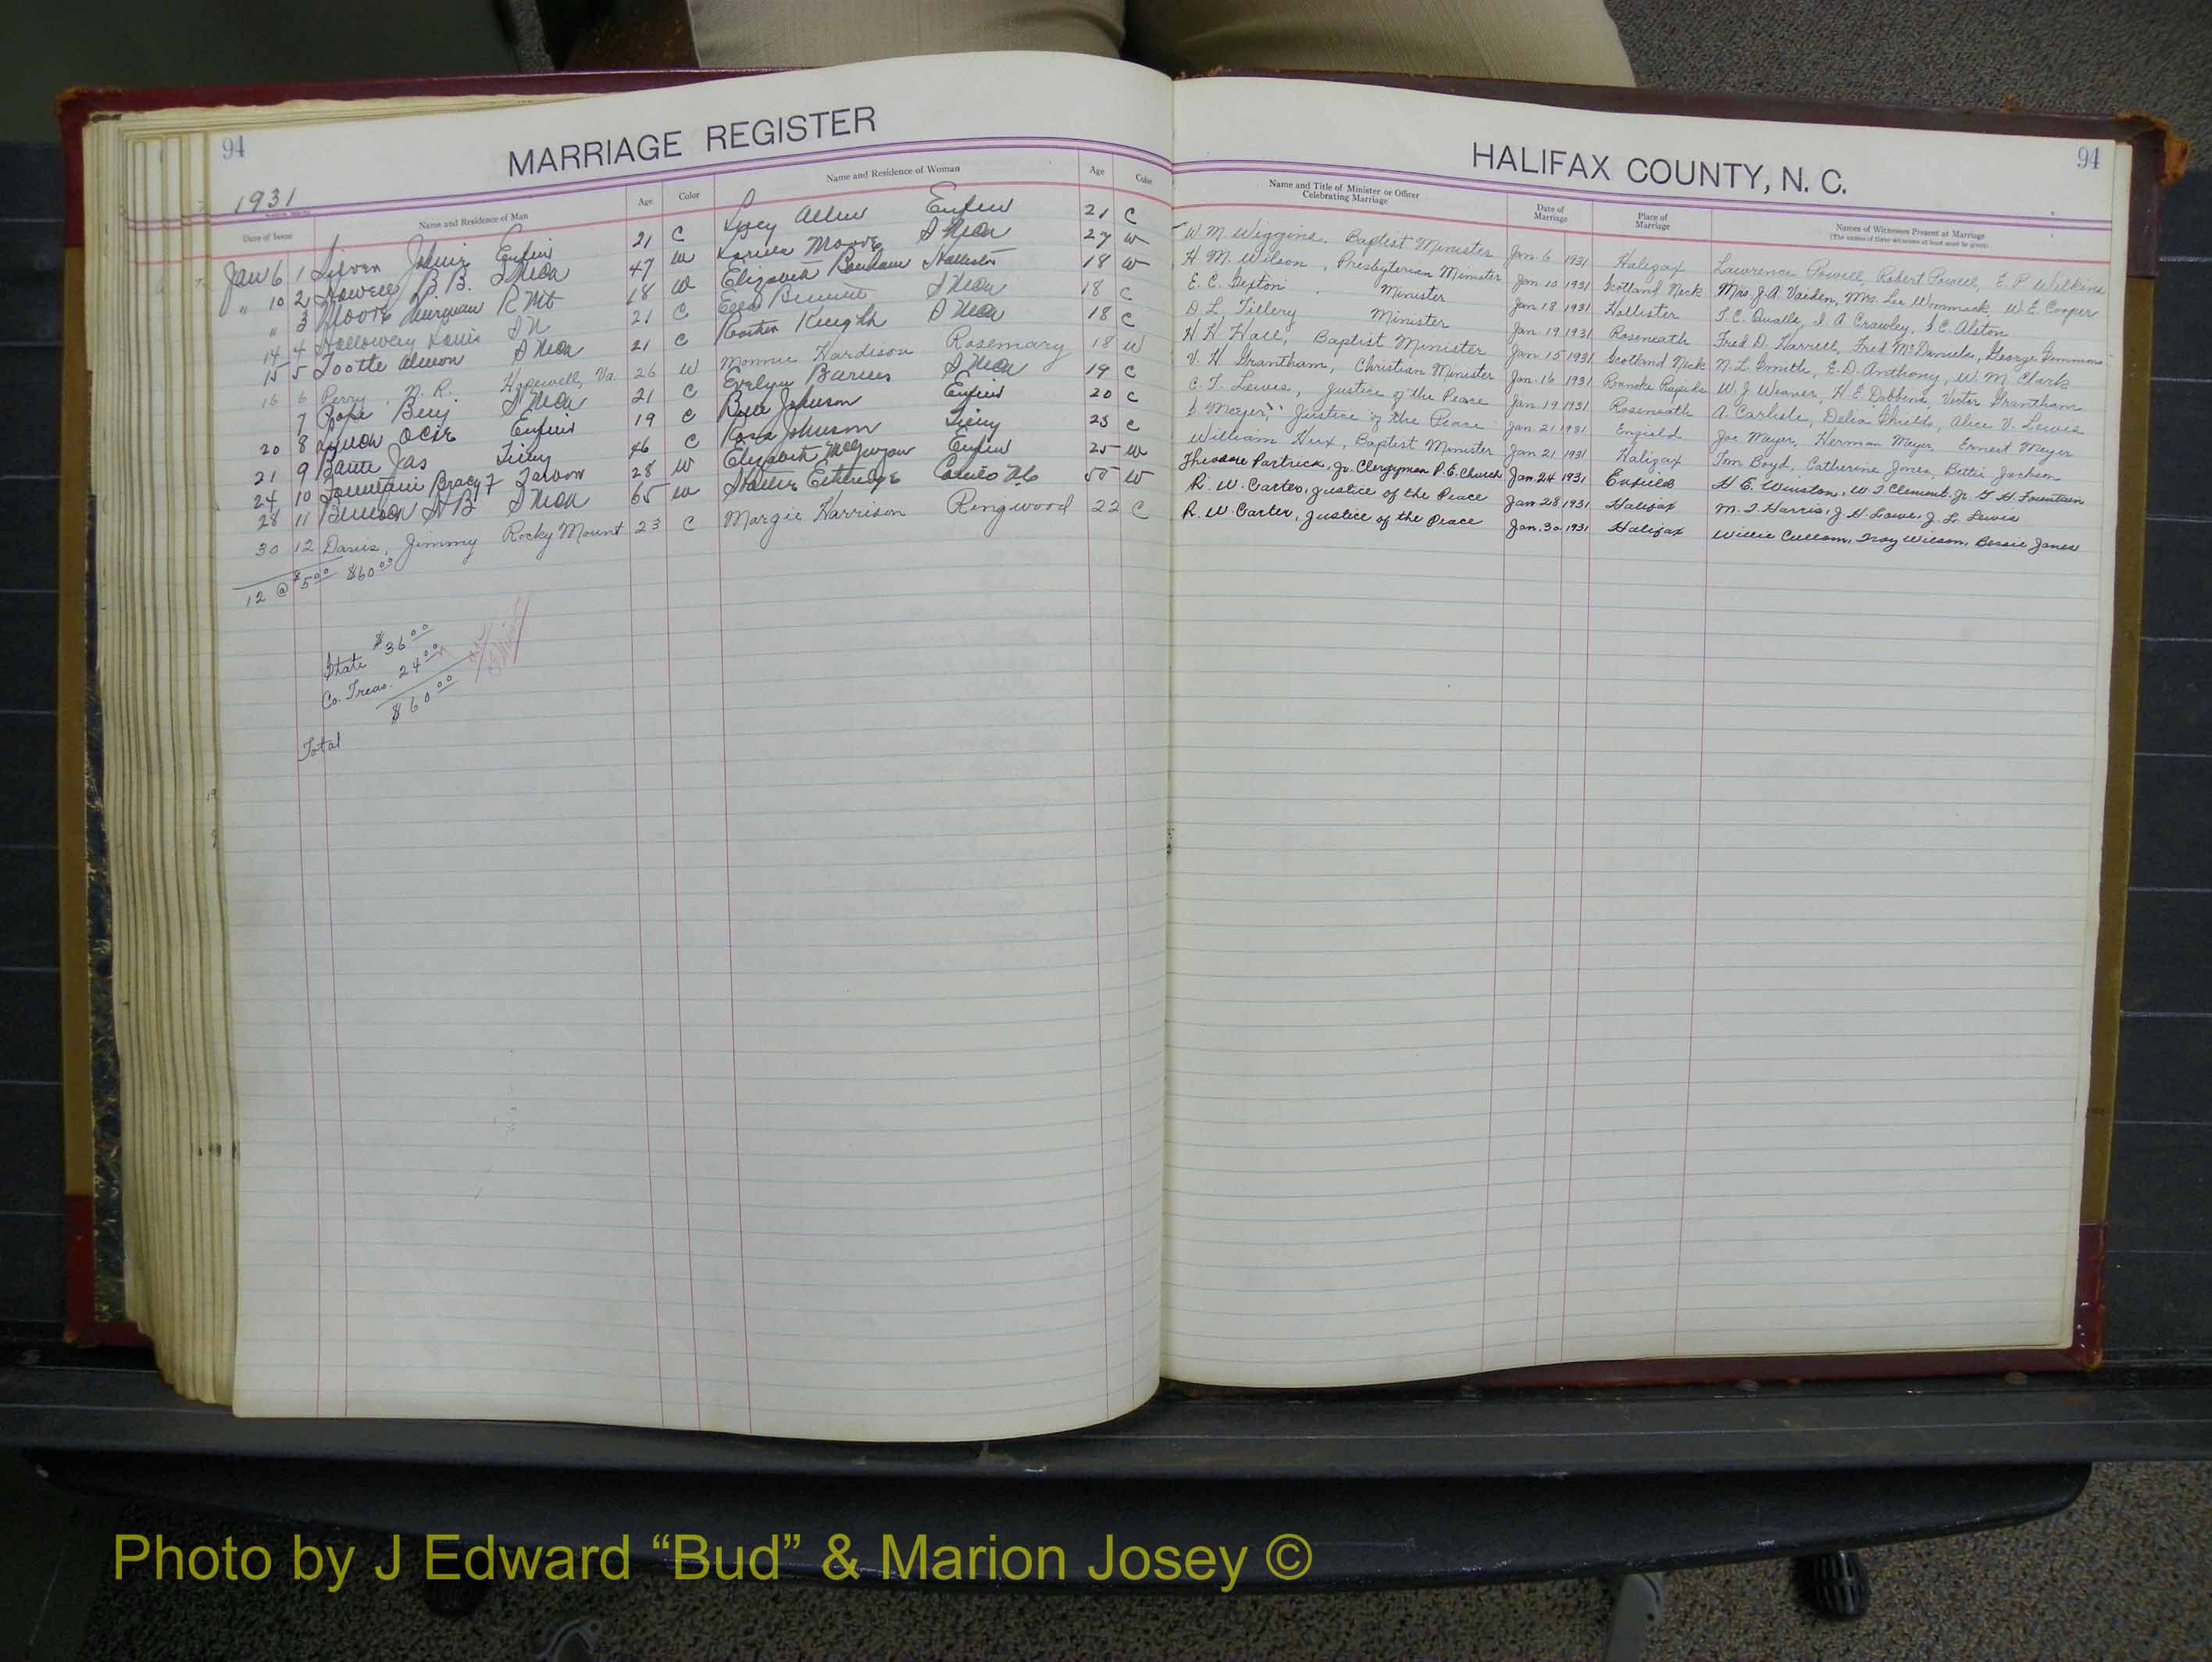 94
MARRIAGE REGISTER
1931
Date of Issue
Name and Residence of Man
Age
Color
Name and Residence of Woman
Age
Color
Jan 6 1 Silver Enfield 21 C Lucy Allen Enfield 21 C
" 10 2 B. B. S Neck 47 W Moore S Neck 27 W
" 3 Moore R Mt 18 W Elizabeth Hollister 18 W
14 4 Holloway Louis S N 21 C S Neck 18 C
15 5 S Neck 21 C Knight S Neck 18 C
16 6 Perry, N. R. Hopewell, Va. 26 W Monnie Hardison Rosemary 18 W
7 Pope Benj S Neck 21 C Evelyn Barnes S Neck 19 C
20 8 Ocie Enfield 19 C Johnson Enfield 20 C
21 9 Jas 46 C Rosa Johnson 23 C
24 10 Fountain Bracy F 28 W Elizabeth Enfield 25 W
28 11 S Neck 65 W Etheredge 50 W
30 12 Davis, Jimmy Rocky Mount 23 C Margie Harrison Ringwood 22 C
12 @ $5.00 $60.00
State $36.00
Co. Treas. 24.00
$60.00
Total
HALIFAX COUNTY, N. C.
94
Name and Title of Minister or Officer Celebrating Marriage
Date of Marriage
Place of Marriage
Names of Witnesses Present at Marriage
(The names of three witnesses at least must be given)
W. M. Wiggins, Baptist Minister Jan. 6 1931 Halifax Lawrence Powell, Robert Powell, E. P. Wilkins
H. M. Wilson, Presbyterian Minister Jan 10 1931 Scotland Neck Mrs. J. A. Vaiden, Mrs. Lee Wommack, W. E. Cooper
E. C. Sexton, Minister Jan 18 1931 Hollister T. C. Qualls, I. A. Crawley, S. C. Alston
D. L. Tillery Minister Jan. 19 1931 Roseneath Fred D. Harrell, Fred McDaniels, George Gemmons
H. H. Hall, Baptist Minister Jan. 15 1931 Scotland Neck N. L. Smith, E. D. Anthony, W. M. Clark
V. H. Grantham, Christian Minister Jan. 16 1931 Roanoke Rapids W. J. Weaver, H. E. Dobbins, Victor Grantham
C. T. Lewis, Justice of the Peace Jan 19 1931 Roseneath A. Carlisle, Delia Shields, Alice V. Lewis
S. Meyer, Justice of the Peace Jan. 21 1931 Enfield Joe Meyer, Herman Meyer, Ernest Meyer
William Hux, Baptist Minister Jan 21 1931 Halifax Tom Boyd, Catherine Jones, Bettie Jackson
Theodore Partrick, Jr. Clergyman P. E. Church Jan. 24 1931 Enfield H. E. Winston, W. T. Clement, Jr. T. H. Fountain
R. W. Carter, Justice of the Peace Jan 28 1931 Halifax M. T. Harris, J. H. Lowe, J. L. Lewis
R. W. Carter, Justice of the Peace Jan. 30 1931 Halifax Willie Cullom, Troy Wilson, Bessie Jones
Photo by J Edward “Bud” & Marion Josey ©